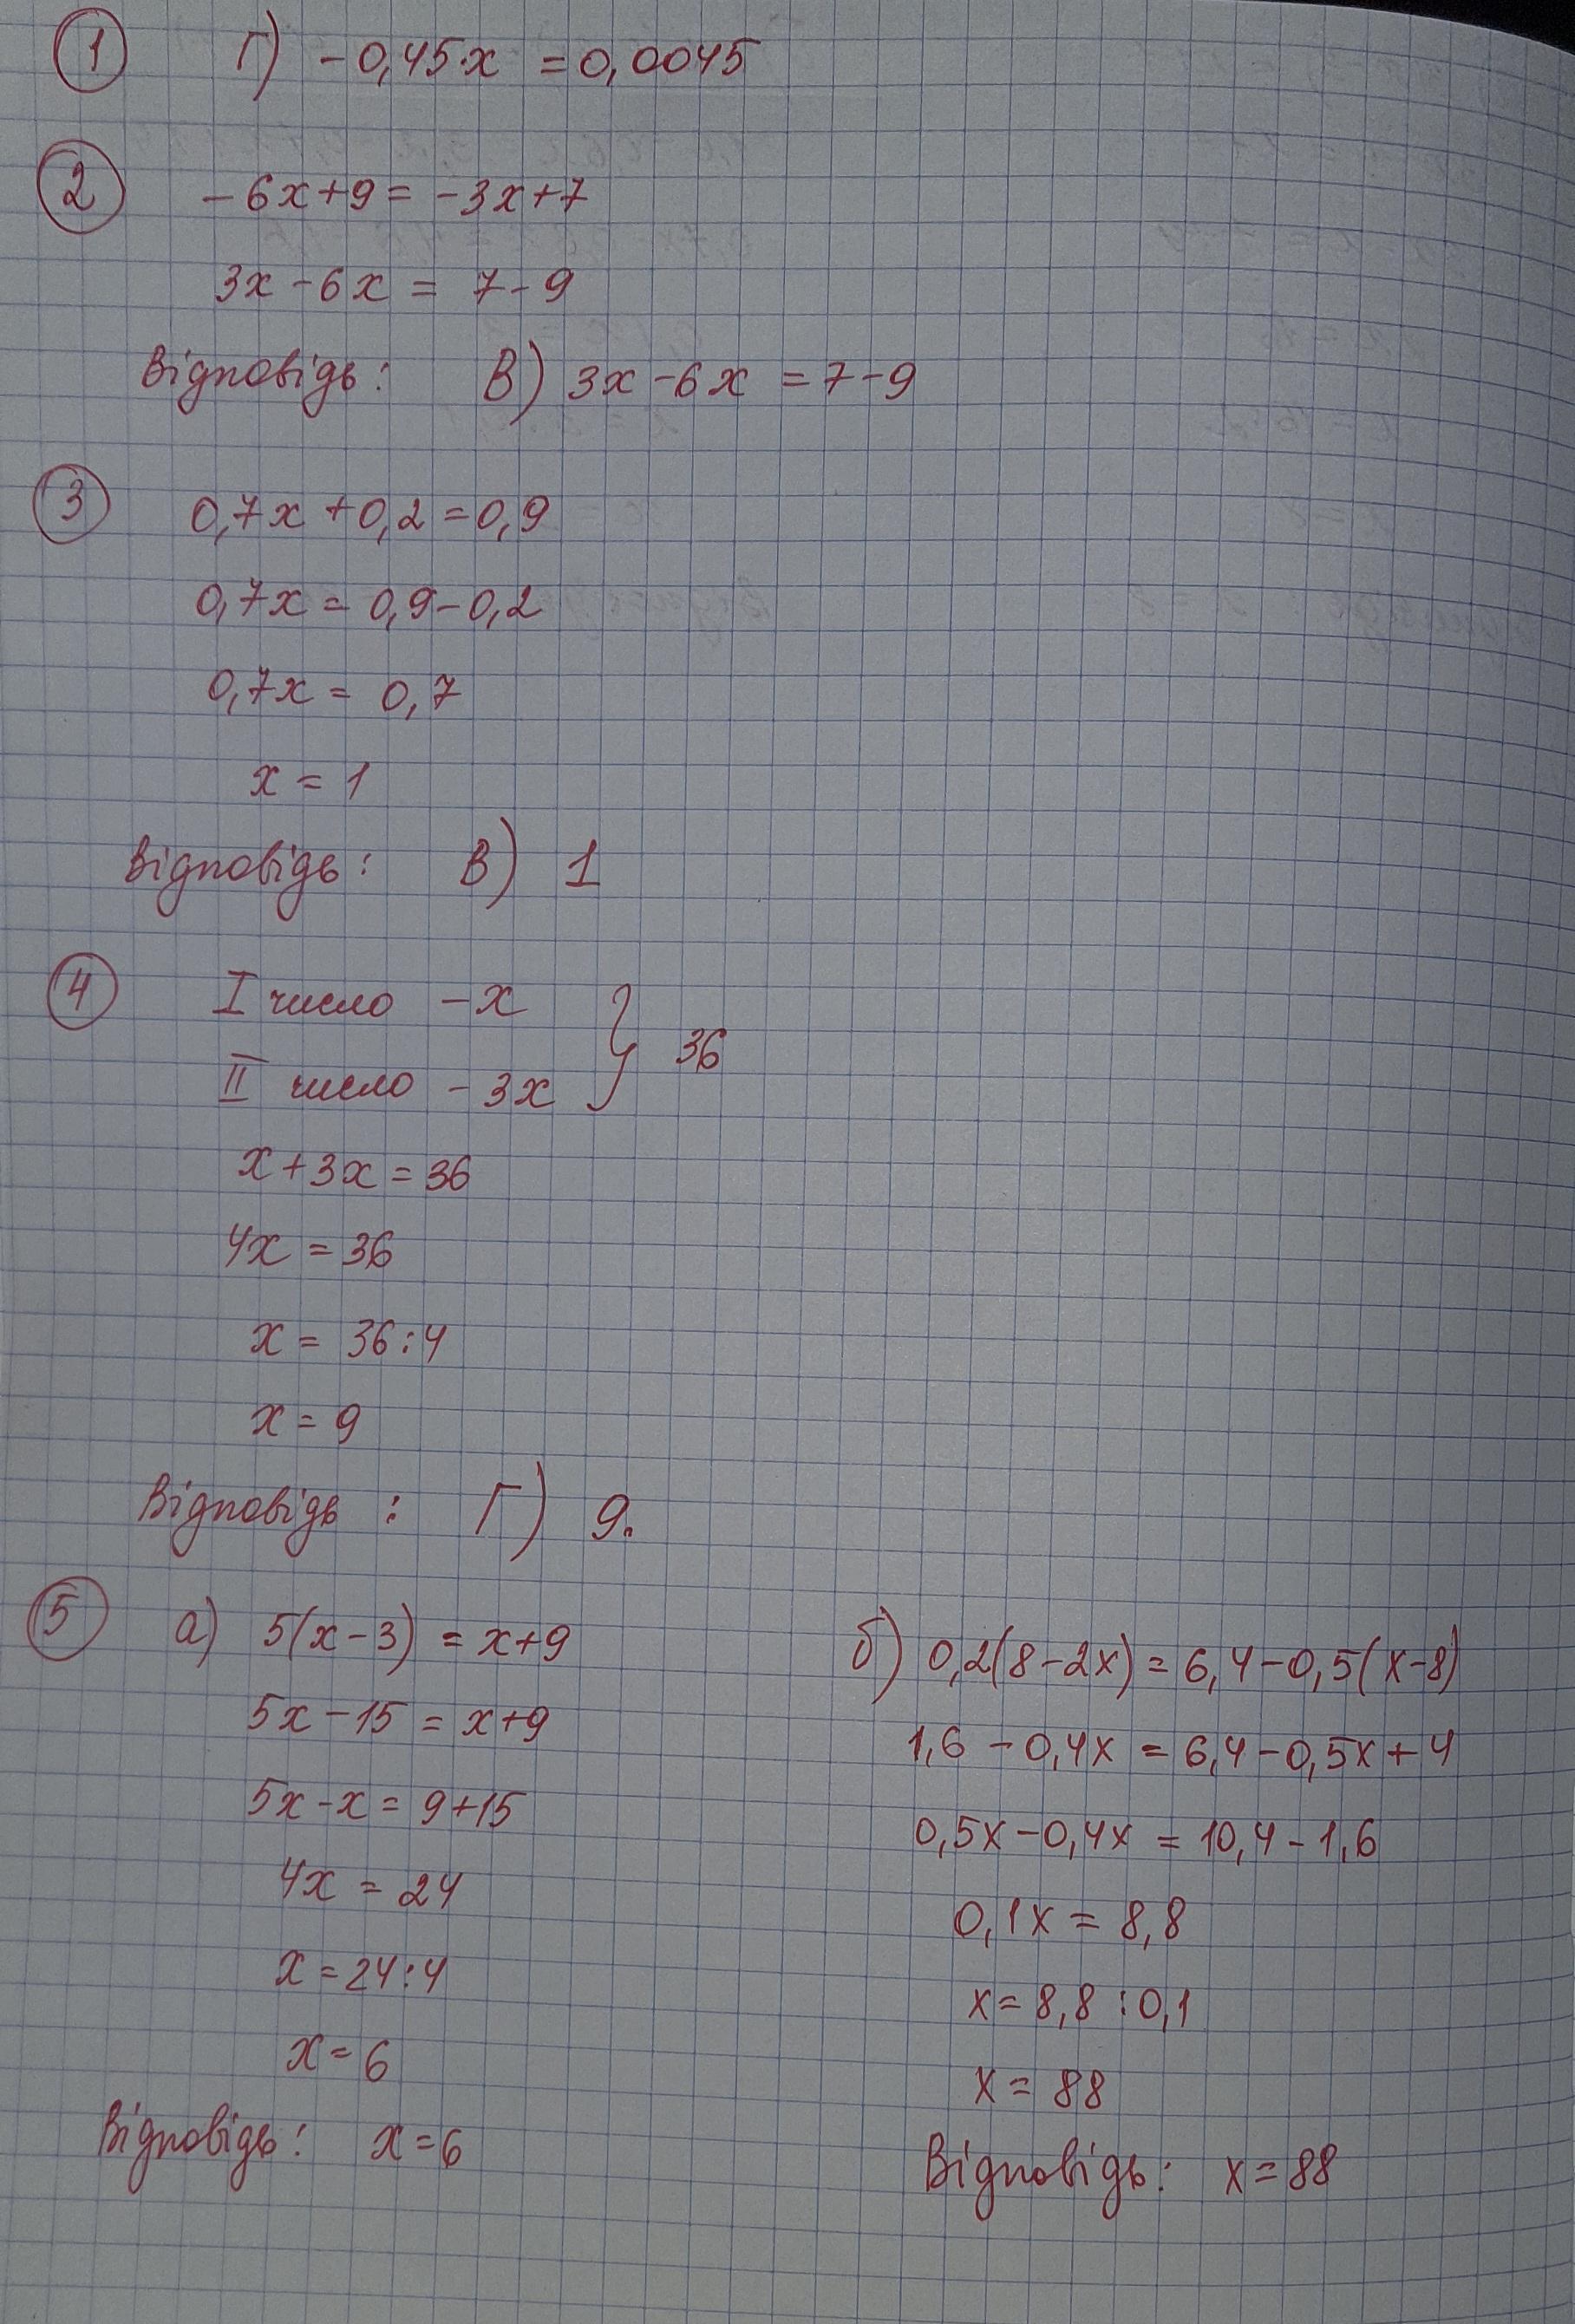 1 Г) -0,45x = 0,0045
2 -6x+9 = -3x+7
3x-6x = 7-9
Відповідь: В) 3x-6x = 7-9
3 0,7x+0,2=0,9
0,7x = 0,9-0,2
0,7x = 0,7
x = 1
Відповідь: В) 1
4 I число - x
II число - 3x } 36
x+3x=36
4x = 36
x = 36:4
x = 9
Відповідь: Г) 9.
5 а) 5(x-3) = x+9
5x-15 = x+9
5x-x = 9+15
4x = 24
x=24:4
x=6
Відповідь: x=6
б) 0,2(8-2x)=6,4-0,5(x-8)
1,6-0,4x = 6,4-0,5x+4
0,5x-0,4x = 10,4-1,6
0,1x = 8,8
x=8,8:0,1
x=88
Відповідь: x=88